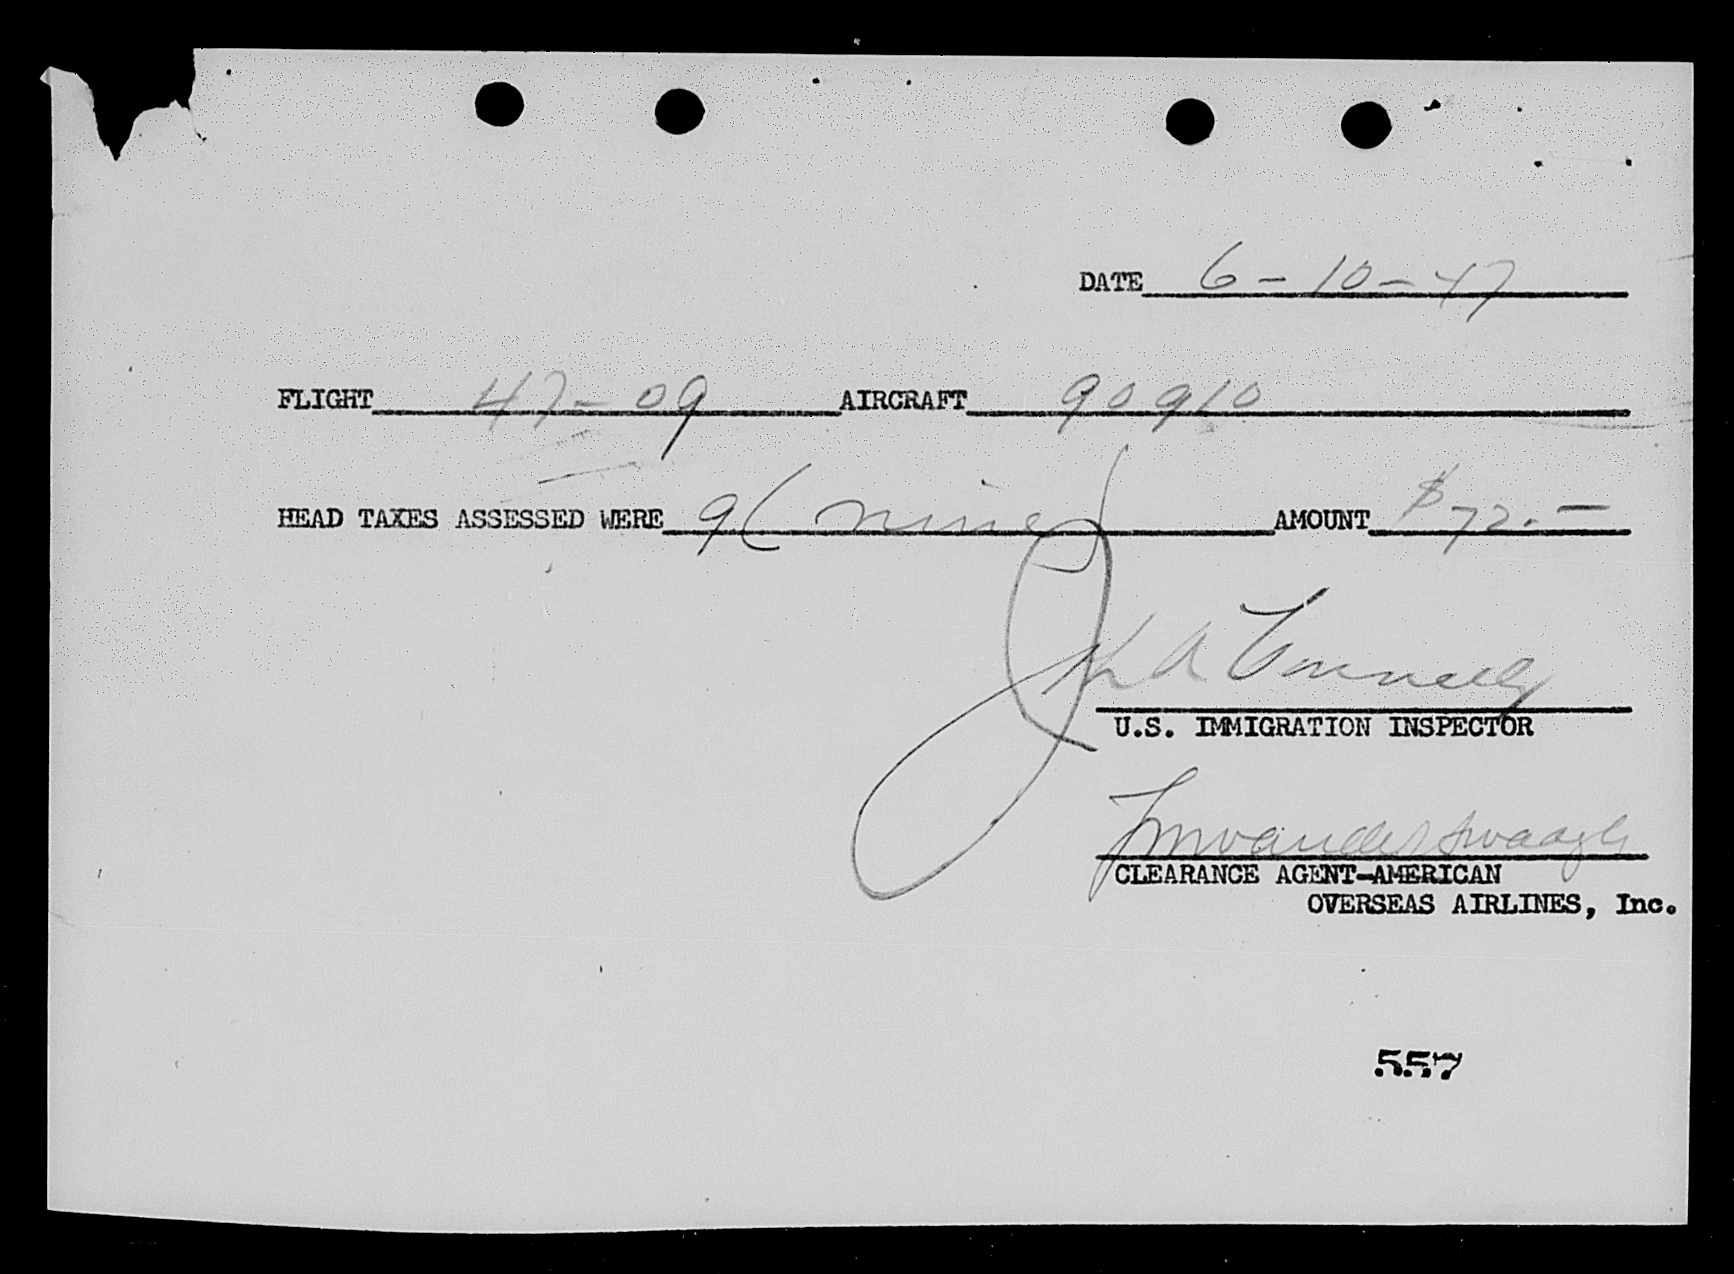 DATE 6-10-47
FLIGHT 47-09 AIRCRAFT 90910
HEAD TAXES ASSESSED WERE 9 (nine) AMOUNT $72.—
A Connelly
U.S. IMMIGRATION INSPECTOR
CLEARANCE AGENT-AMERICAN
OVERSEAS AIRLINES, Inc.
557